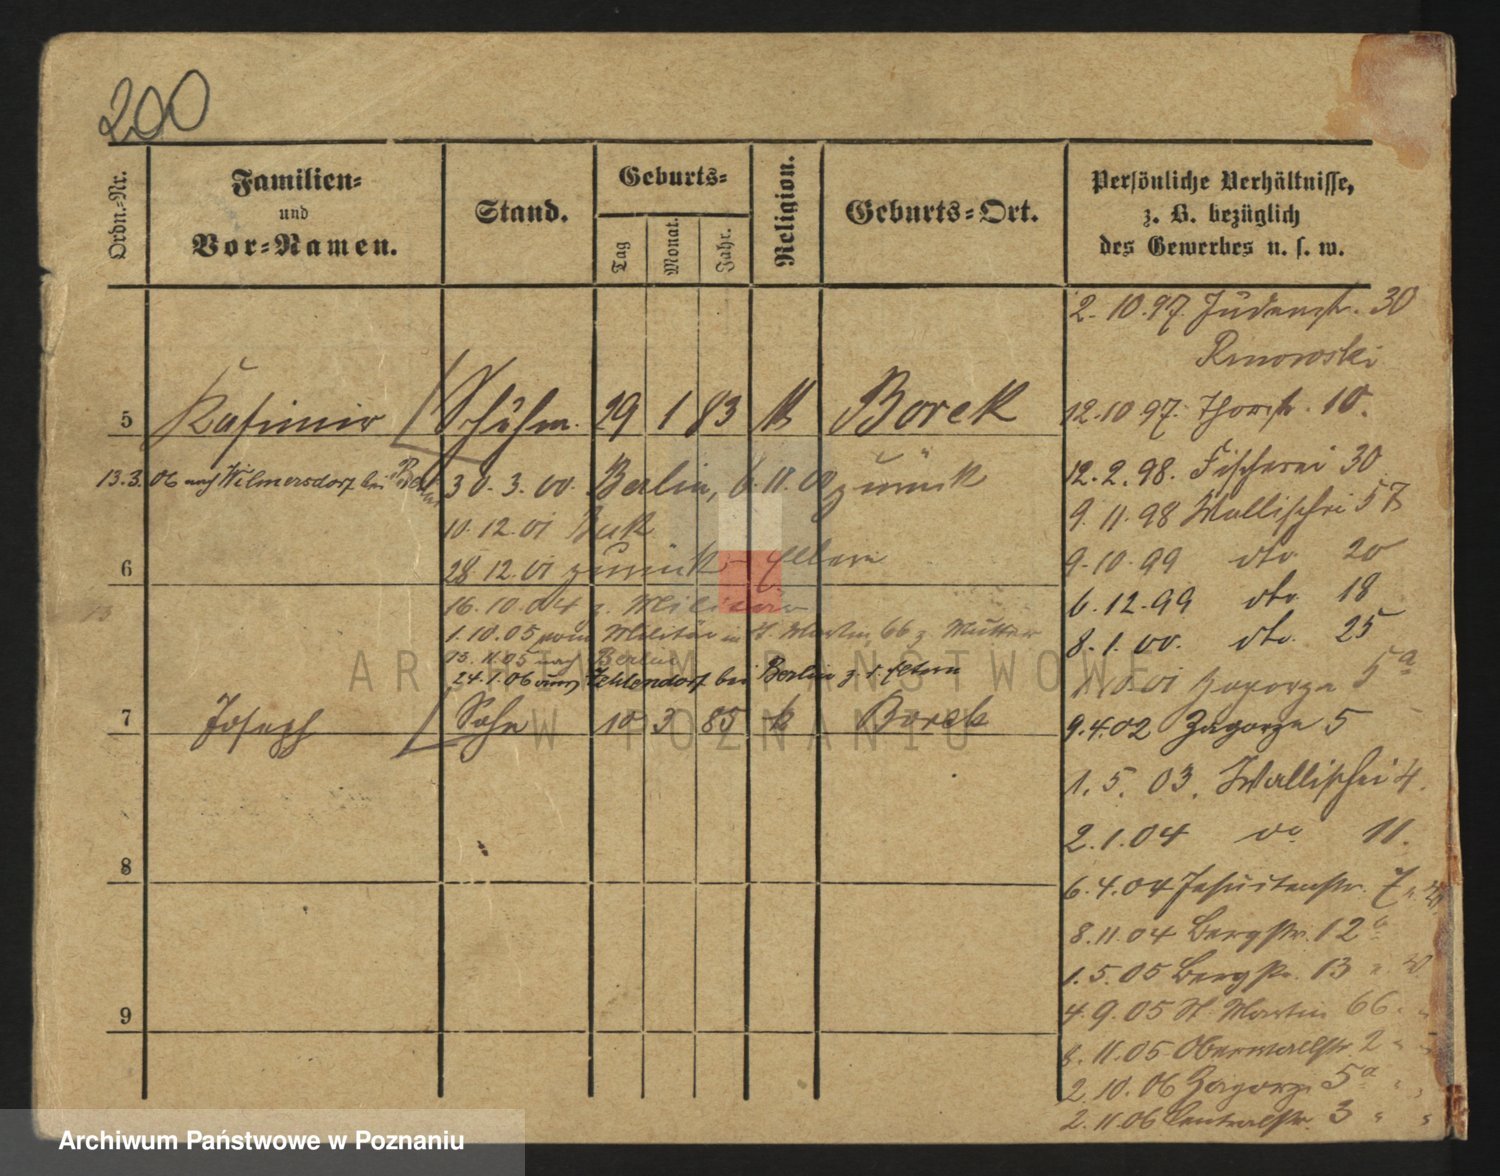 200
Ordn.-Nr.
Familien-
und
Vor-Namen.
Stand.
Geburts-
Tag
Monat.
Jahr.
Religion.
Geburts-Ort.
Persönliche Verhältnisse,
z. B. bezüglich
des Gewerbes u. s. w.
2. 10. 97. Judenstr. 30
5 Kasimir Schuhm. 29 1 83 k Borek
12. 10 97. Thorstr. 10.
13. 3. 06 nach Wilmersdorf bei Berlin
30. 3. 00. Berlin, 6. 11. 00 zurück
12. 2. 98. Fischerei 30
10. 12. 01 Buk
9. 11. 98 Wallischei 57
6
28. 12. 01 zurück Eltern
9. 10. 99 dto 20
16. 10. 04 z. Militär
6. 12. 99 dto. 18
1. 10. 05 vom Militär in St. Martin 66 z. Mutter
8. 1. 00. dto. 25
13. 11. 05 nach Berlin
24. 1. 06 von Zehlendorf bei Berlin z. d. Eltern
01 Zagorze 5a
7 Joseph Sohn 10 3 85 k Borek
9. 4. 02 Zagorze 5
1. 5. 03. Wallischei 4.
2. 1. 04 do 11.
8
6. 4. 04 Jesuitenstr. 7
8. 11. 04 Bergstr. 12b
1. 5. 05 Bergstr. 13
4. 9. 05 St. Martin 66.
9
8. 11. 05 Oberwallstr. 2
2. 10. 06 Zagorze 5a
2. 11. 06 Centralstr. 3
ARCHIWUM PAŃSTWOWE
W POZNANIU
Archiwum Państwowe w Poznaniu